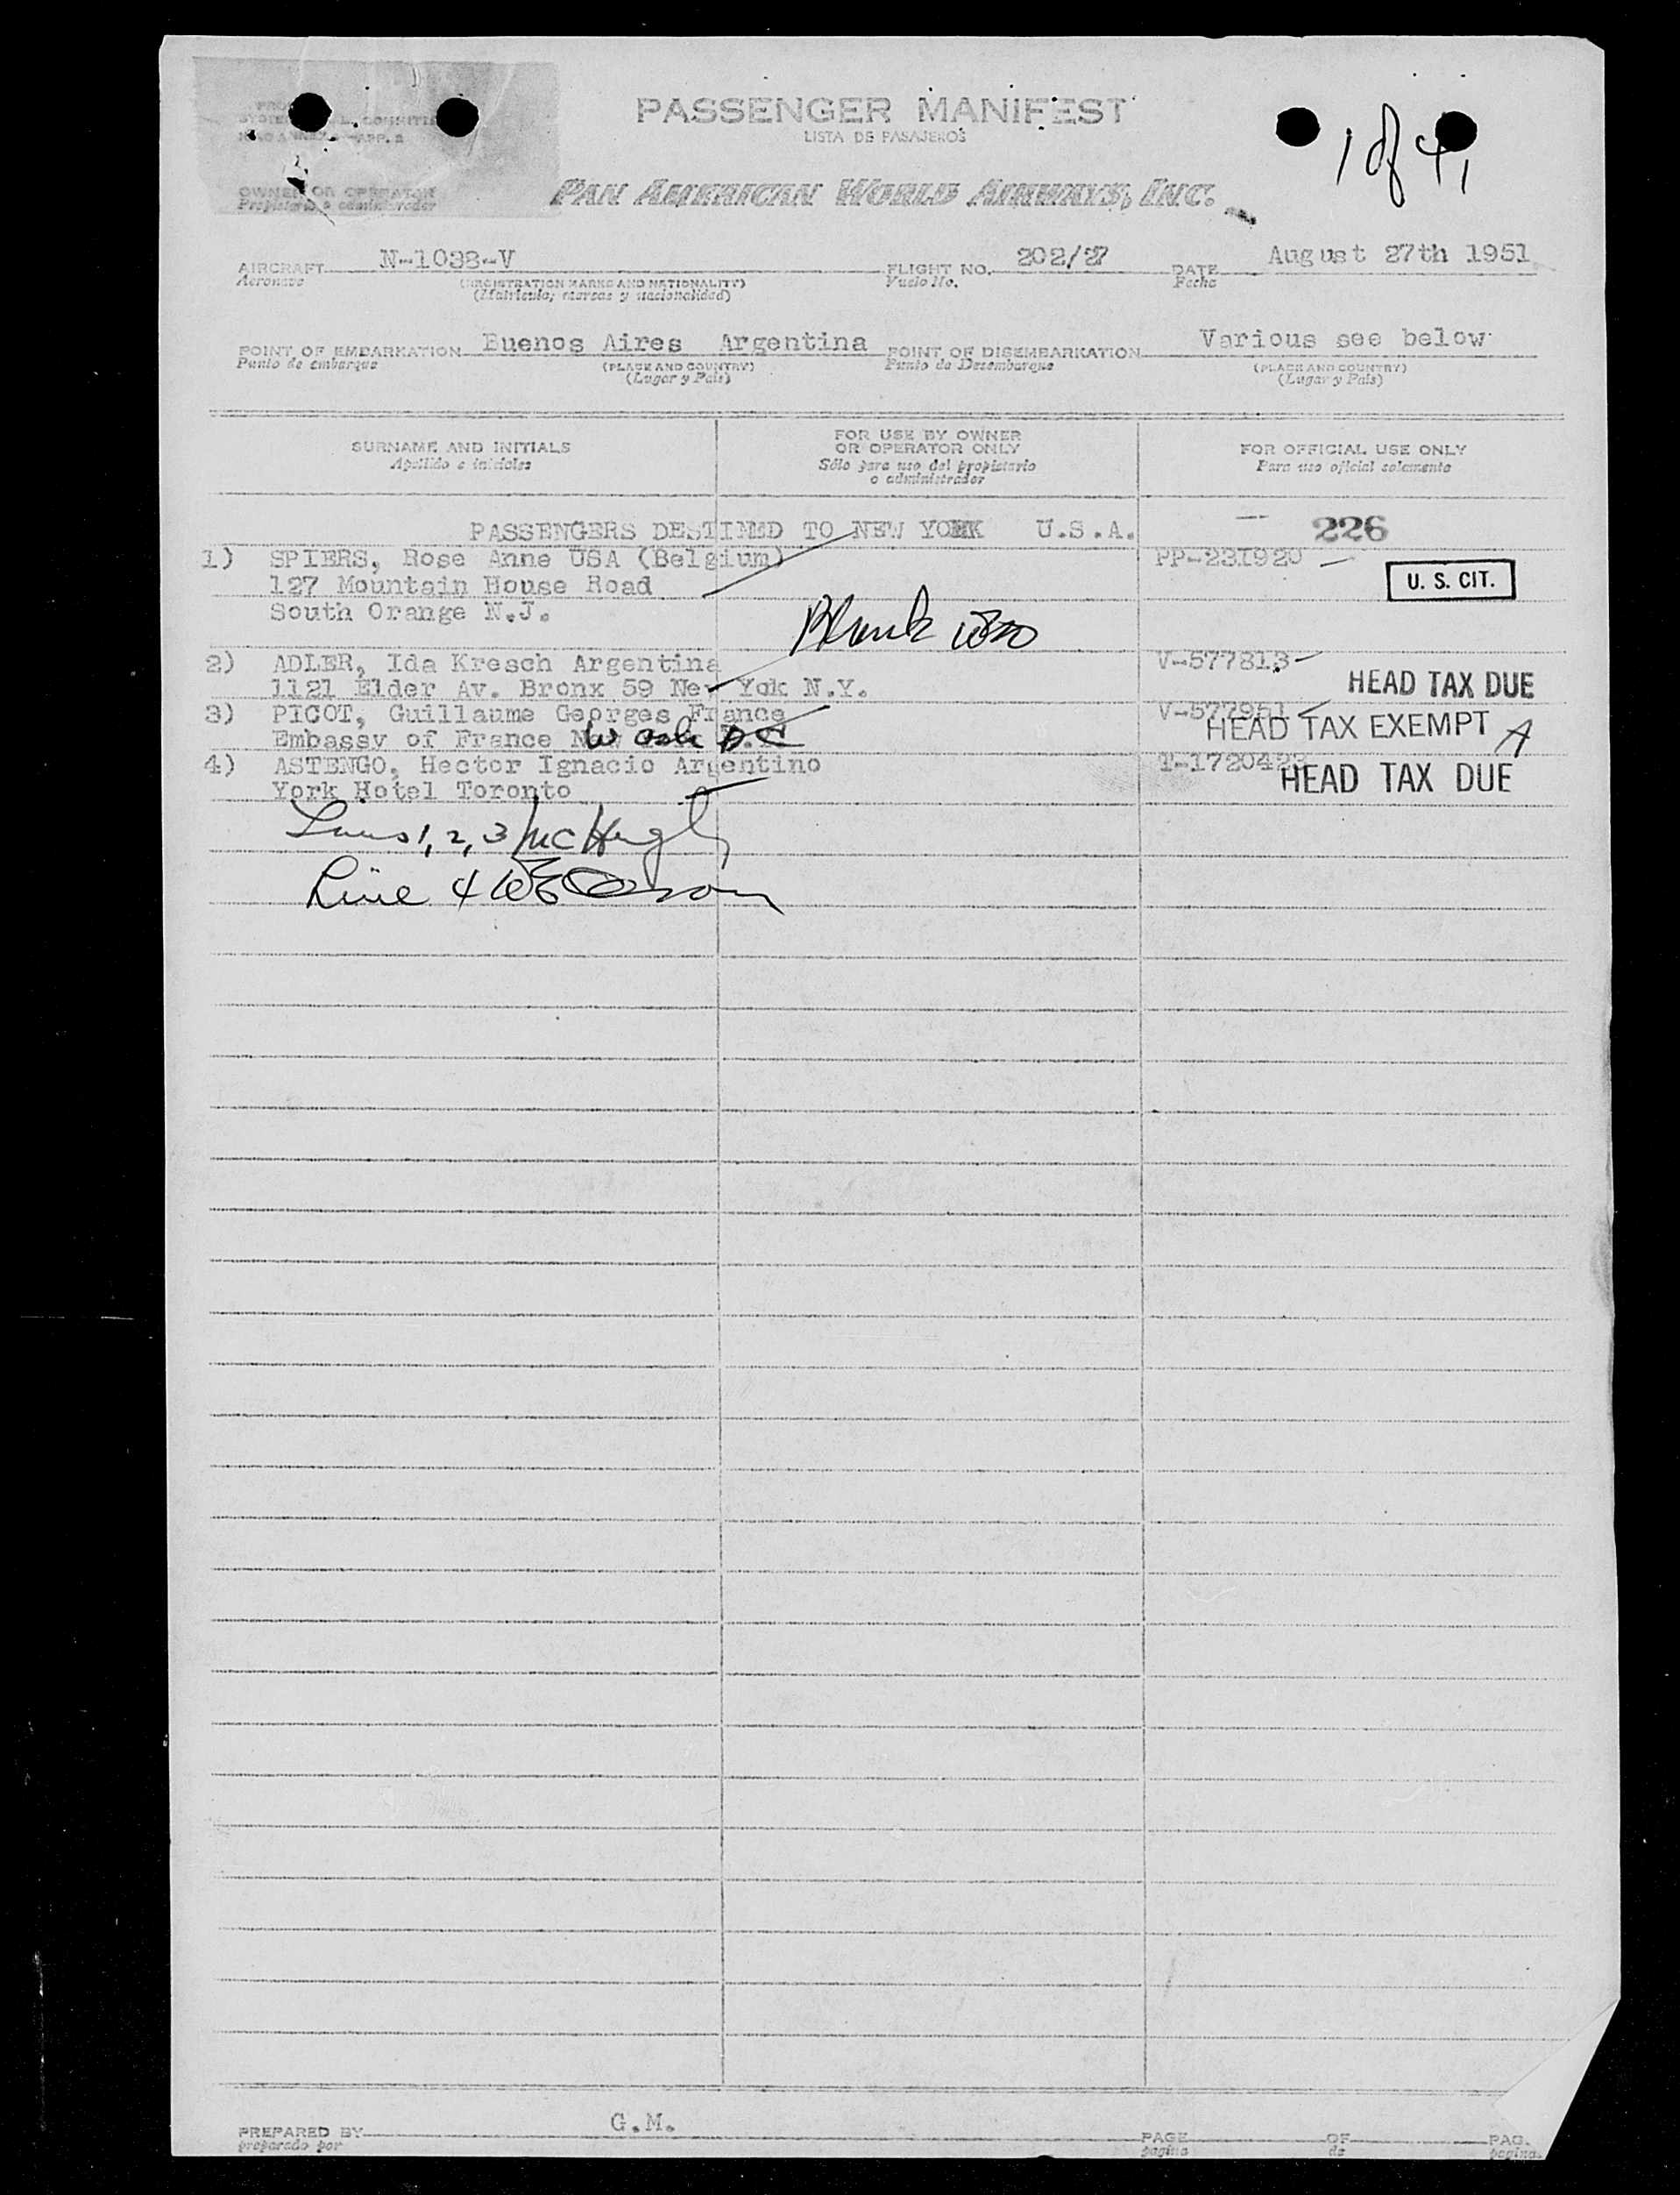 PASSENGER MANIFEST
LISTA DE PASAJEROS
1 of 4
APP. 2
OWNER OR OPERATOR
Propietario o administrador
PAN AMERICAN WORLD AIRWAYS, INC.
AIRCRAFT N-1038-V FLIGHT NO. 202/27 DATE August 27th 1951
Aeronave (REGISTRATION MARKS AND NATIONALITY) Vuelo No. Fecha
(Matrícula; marcas y nacionalidad)
POINT OF EMBARKATION Buenos Aires Argentina POINT OF DISEMBARKATION Various see below
Punto de embarque (PLACE AND COUNTRY) Punto de Desembarque (PLACE AND COUNTRY)
(Lugar y País) (Lugar y País)
SURNAME AND INITIALS FOR USE BY OWNER OR OPERATOR ONLY FOR OFFICIAL USE ONLY
Apellido e iniciales Sólo para uso del propietario o administrador Para uso oficial solamente
PASSENGERS DESTINED TO NEW YORK U.S.A. 226
1) SPIERS, Rose Anne USA (Belgium) PP-231920
127 Mountain House Road U. S. CIT.
South Orange N.J.
2) ADLER, Ida Kresch Argentina V-577813
1121 Elder Av. Bronx 59 New Yok N.Y. HEAD TAX DUE
3) PICOT, Guillaume Georges France V-577951
Embassy of France Wash DC HEAD TAX EXEMPT A
4) ASTENGO, Hector Ignacio Argentino T-1720423
York Hotel Toronto HEAD TAX DUE
1, 2, 3 McHugh
Line 4
PREPARED BY G.M. PAGE OF PAG.
preparado por pagina de pagina